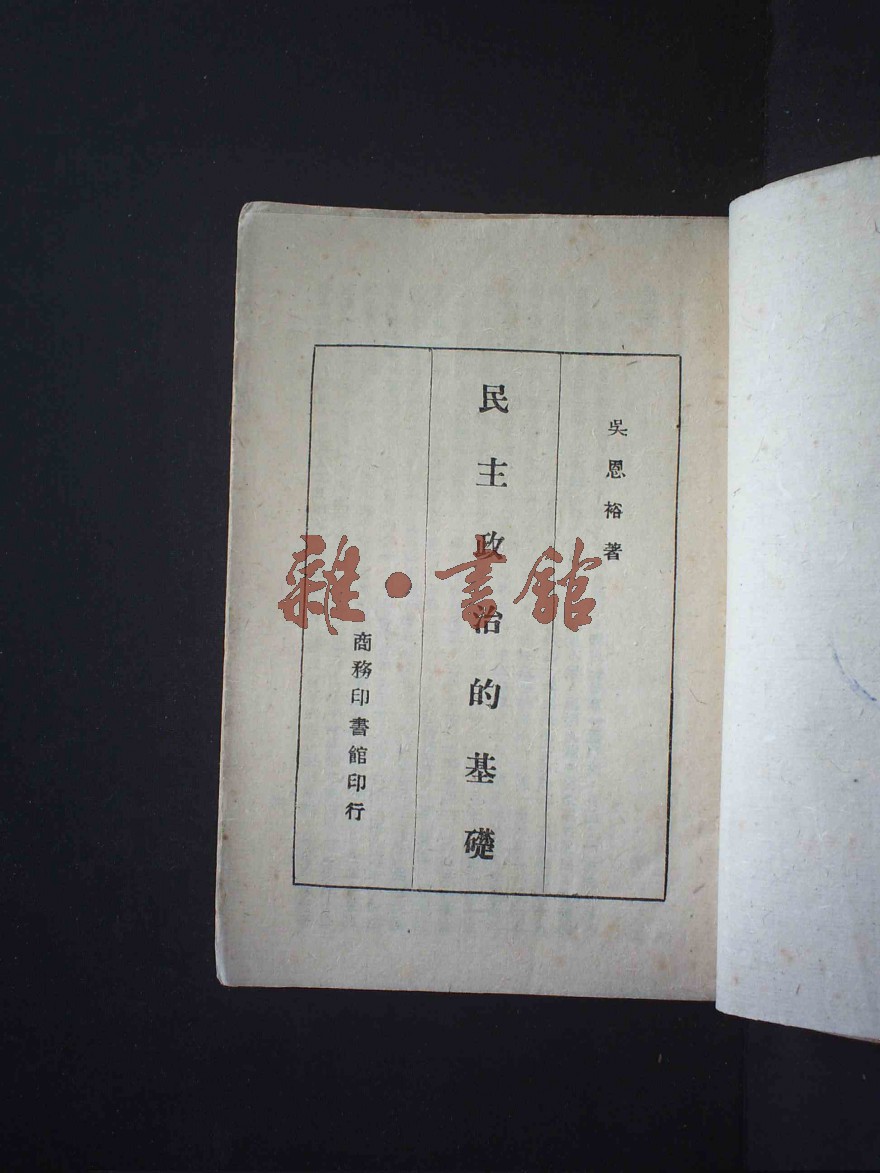 吳恩裕著
民主政治的基礎
商務印書館印行
雜·書館